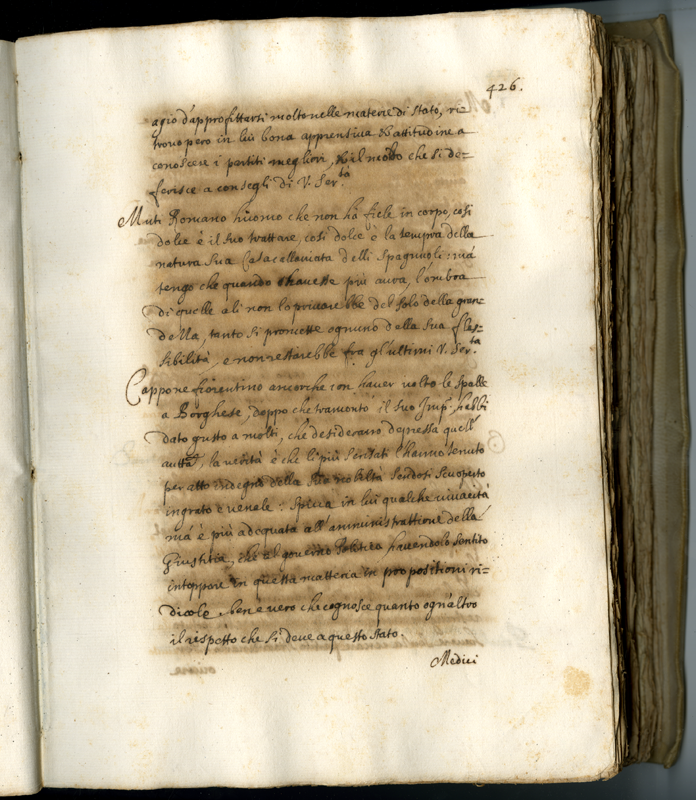 426.
agio d'approfittarsi molto nelle materie di stato, ri-
trovo pero in lui bona apprensiva et attitudine a
conoscere i partiti megliori, et il modo che si de=
ferisce a consegli di V. Ser.tà
Muti Romano huomo che non hà fiele in corpo, così
dolce è il suo trattare, così dolce è la tempra della
natura sua Casa stipendiata delli Spagnuoli: mà
tengo che quando havesse più aura, l'ombra
di quelle ali non lo privarebbe del sole della gran=
dezza, tanto si promette ognuno della sua fles=
sibilità, e non restarebbe fra gl'ultimi V. Ser.tà
Cappone fiorentino ancorche con haver volto le spalle
a Borghese, doppo che tramontò il suo Imp.o, habbi
dato gusto a molti, che desideravano depressa quell'
autt.à, la verità è che li più sensati l'hanno tenuto
per atto indegno della sua nobiltà sendosi scoperto
ingrato e venale: Spicca in lui qualche vivacità
mà è più adequata all'amministrattione della
Giustitia, che al governo Politico havendolo sentito
intoppare in questa matteria in propositioni ri=
dicole, ben e vero che cognosce quanto ogn'altro
il rispetto che si deve a questo stato.
Medici